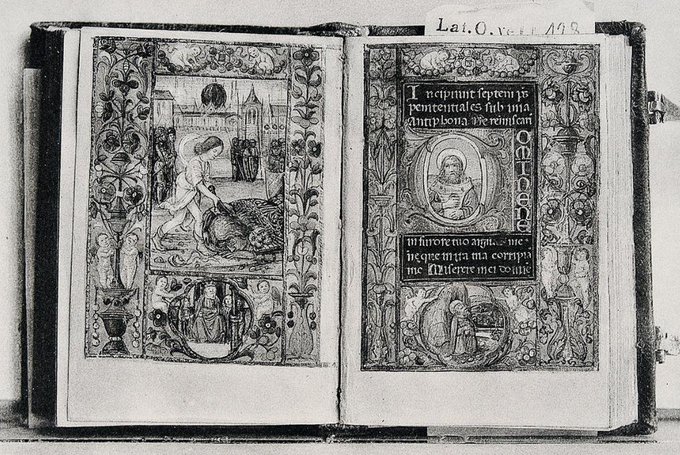 Lat. O. 118
Incipiunt septem ps
penitentiales sub una
Antiphona Ne reminscari
OMINE NE
in furore tuo arguas me
neque in ira tua corripia
me Miserere mei domine